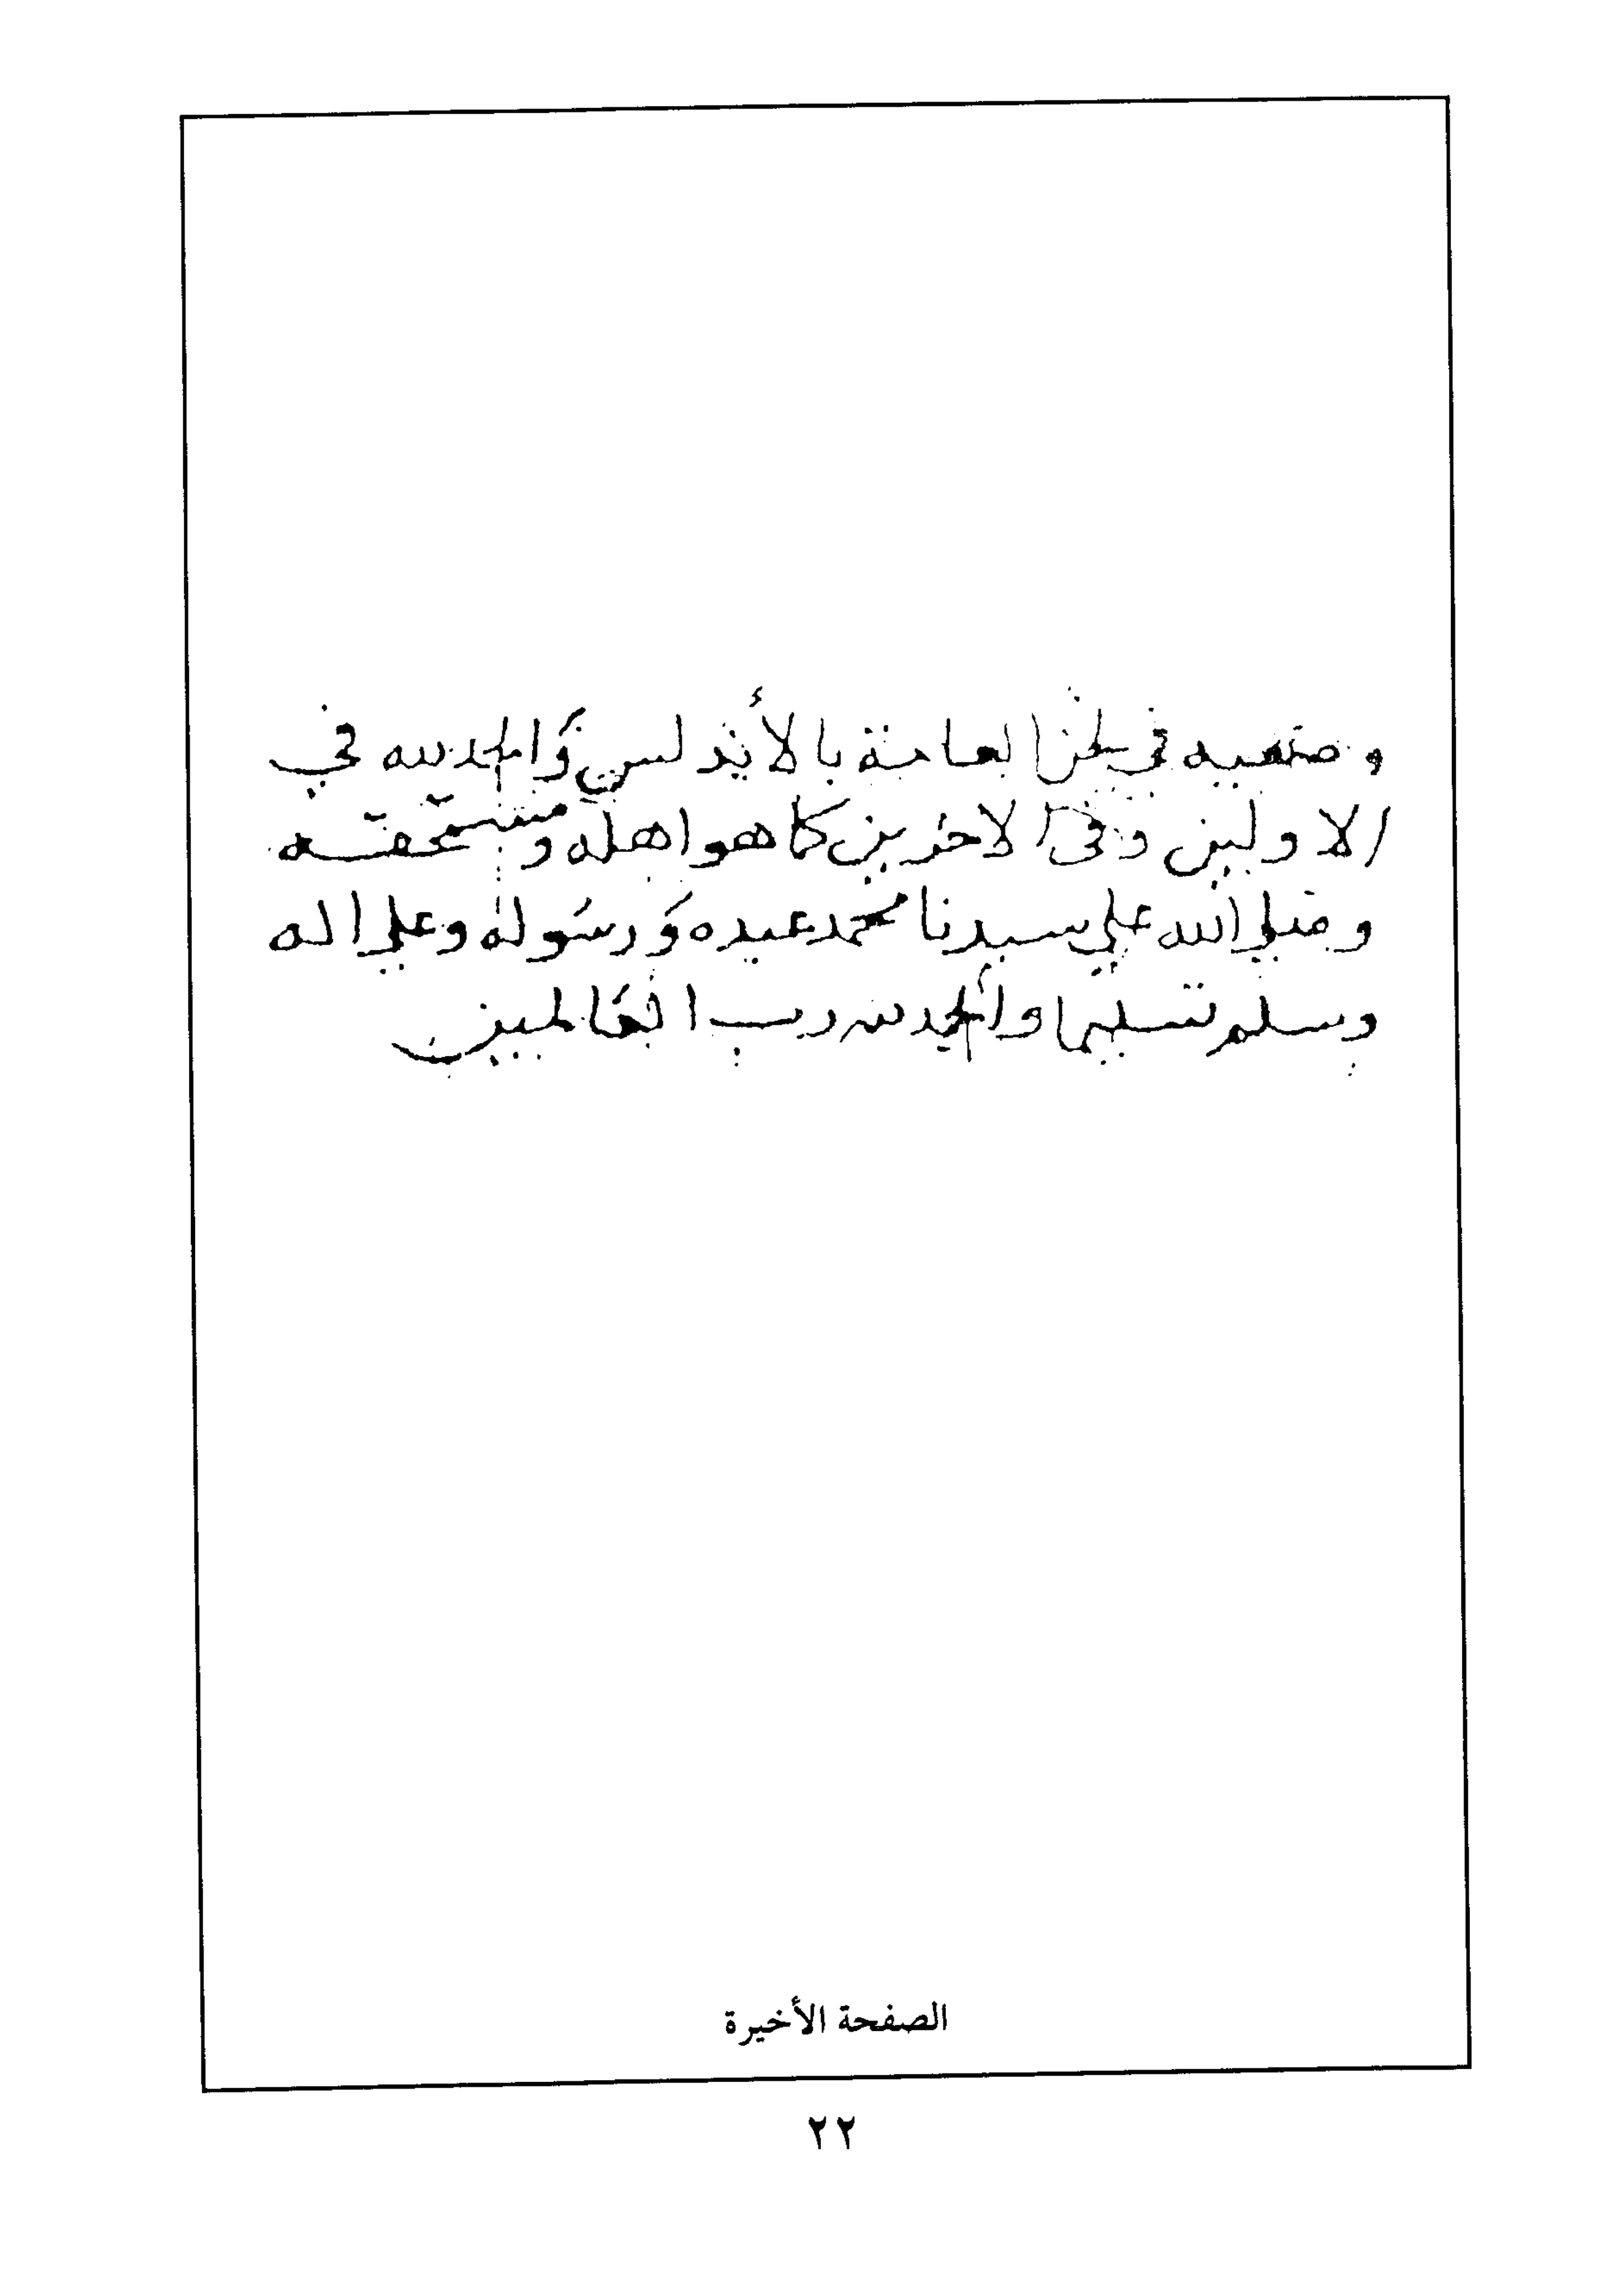 في لحن العامة بالأندلس والحمد لله في
الاولين وفى الاخرين كما هو اهله ومستحقه
وصلي الله علي سيدنا محمد عبده ورسوله وعلي اله
وسلم تسليما والحمد لله رب العالمين
الصفحة الأخيرة
٢٢